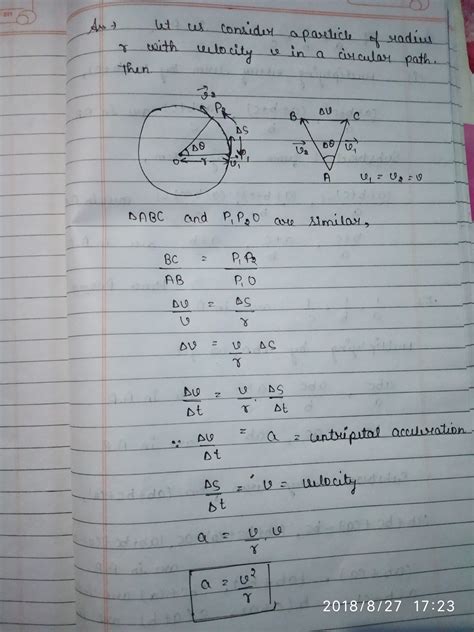 Ans → Let us consider a particle of radius
r with velocity v in a circular path.
Then
v⃗₂
P₂
ΔS
Δθ
O
r
v⃗₁
P₁
B
ΔV
C
v⃗₂
Δθ
v⃗₁
A
v₁ = v₂ = v
ΔABC and P₁P₂O are similar,
BC/AB = P₁P₂/P₁O
Δv/v = ΔS/r
Δv = v/r ΔS
Δv/Δt = v/r . ΔS/Δt
∵ Δv/Δt = a = centripetal accleration
ΔS/Δt = v = velocity
a = v/r . v
a = v²/r
2018/8/27 17:23